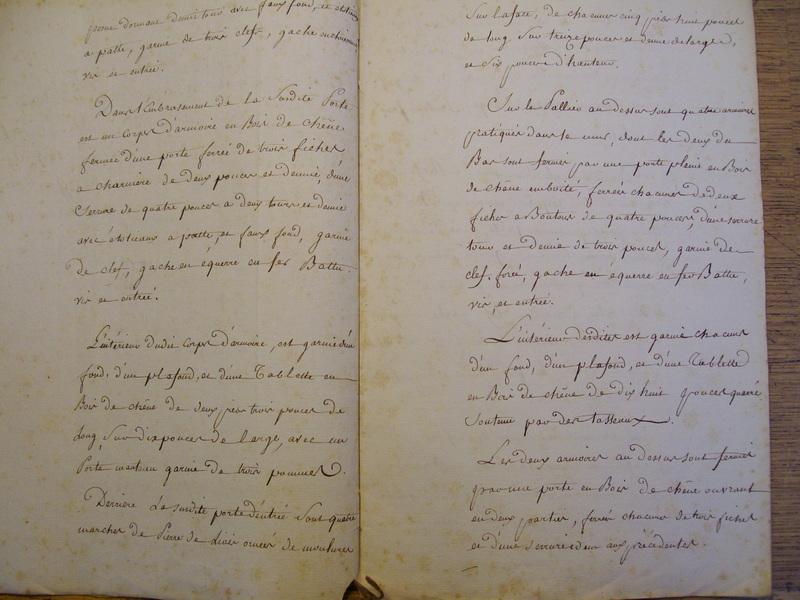 donnant demie tour avec faux fond, et
a patte, garnie de trois clefs, gache
vis et entrée.
Dans l'Embrasement de la Susdite Porte
est un corps d'armoire en Bois de chêne
fermée d'une porte ferrée de trois fiches
a charnière de deux pouces et demie, d'une
Serrure de quatre pouces a deux tours et demie
avec étoteaux a patte, et faux fond, garnie
de clef, gache en équerre en fer Battu
vis et entrée.
L'intérieur dudit corps d'armoire, est garnie d'un
fond, d'un plafond, et d'une Tablette en
Bois de chêne de deux pieds trois pouces de
Long, Sur dix pouces de large, avec un
Porte manteau garnie de trois pommes.
Derrière La susdite porte d'entrée Sont quatre
marches de Pierre de liais ornées de moulures
Sur la face, de chacune cinq pieds huit pouces
de long Sur treize pouces et demie de large,
et Six pouces d'hauteur.
Sur le Pallier au dessus sont quatre armoires
pratiqués dans le mur, dont les deux du
Bas sont fermés par une porte pleine en Bois
de chêne emboité, ferrées chacunes de deux
fiches a Boutons de quatre pouces, d'une serrure
tour et demie de trois pouces, garnie de
clef forée, gache en équerre en fer Battu,
vis, et entrée.
L'intérieur desdites est garnie chacunes
d'un fond, d'un plafond, et d'une Tablette
en Bois de chêne de dix huit pouces quarré
Soutenue par des tasseaux.
Les deux armoires au dessus sont fermés
par une porte en Bois de chêne ouvrant
en deux parties, ferrées chacunes de trois fiches
et d'une serrure idem aux précédentes.